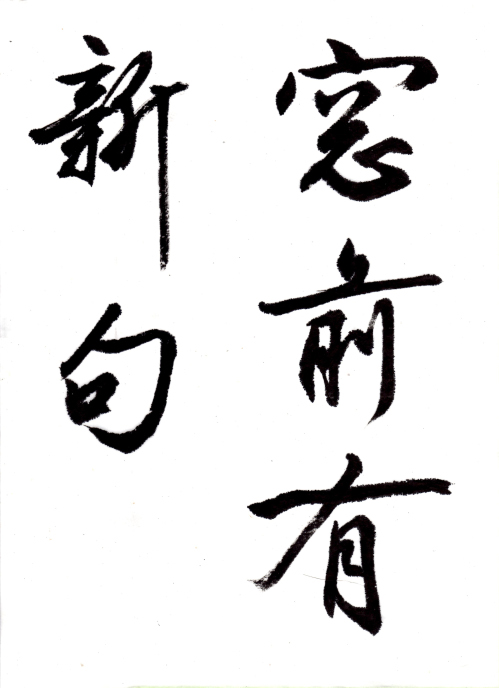 窓前有
新句